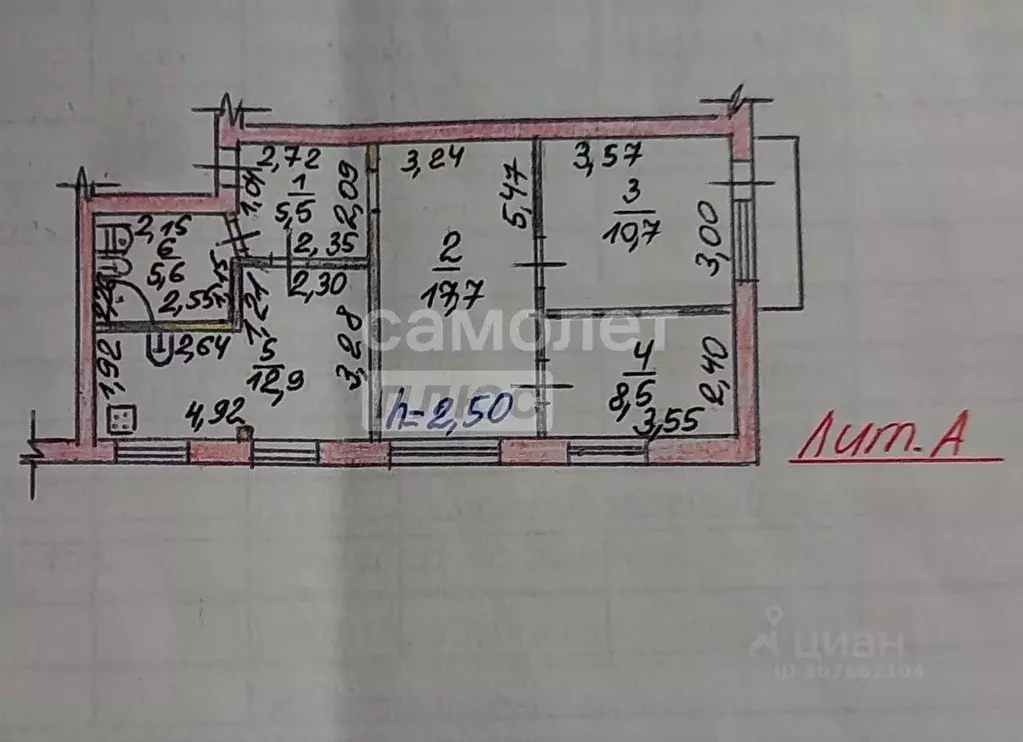 2,72
3,24
3,57
1,01
1
5,5
2,09
5,47
3
10,7
3,00
2,15
6
5,6
2,35
2
17,7
2,30
2,55
1,21
3,28
самолет
плюс
1,92
2,64
5
12,9
4
8,5
2,40
4,92
h=2,50
3,55
Лит. А
циан